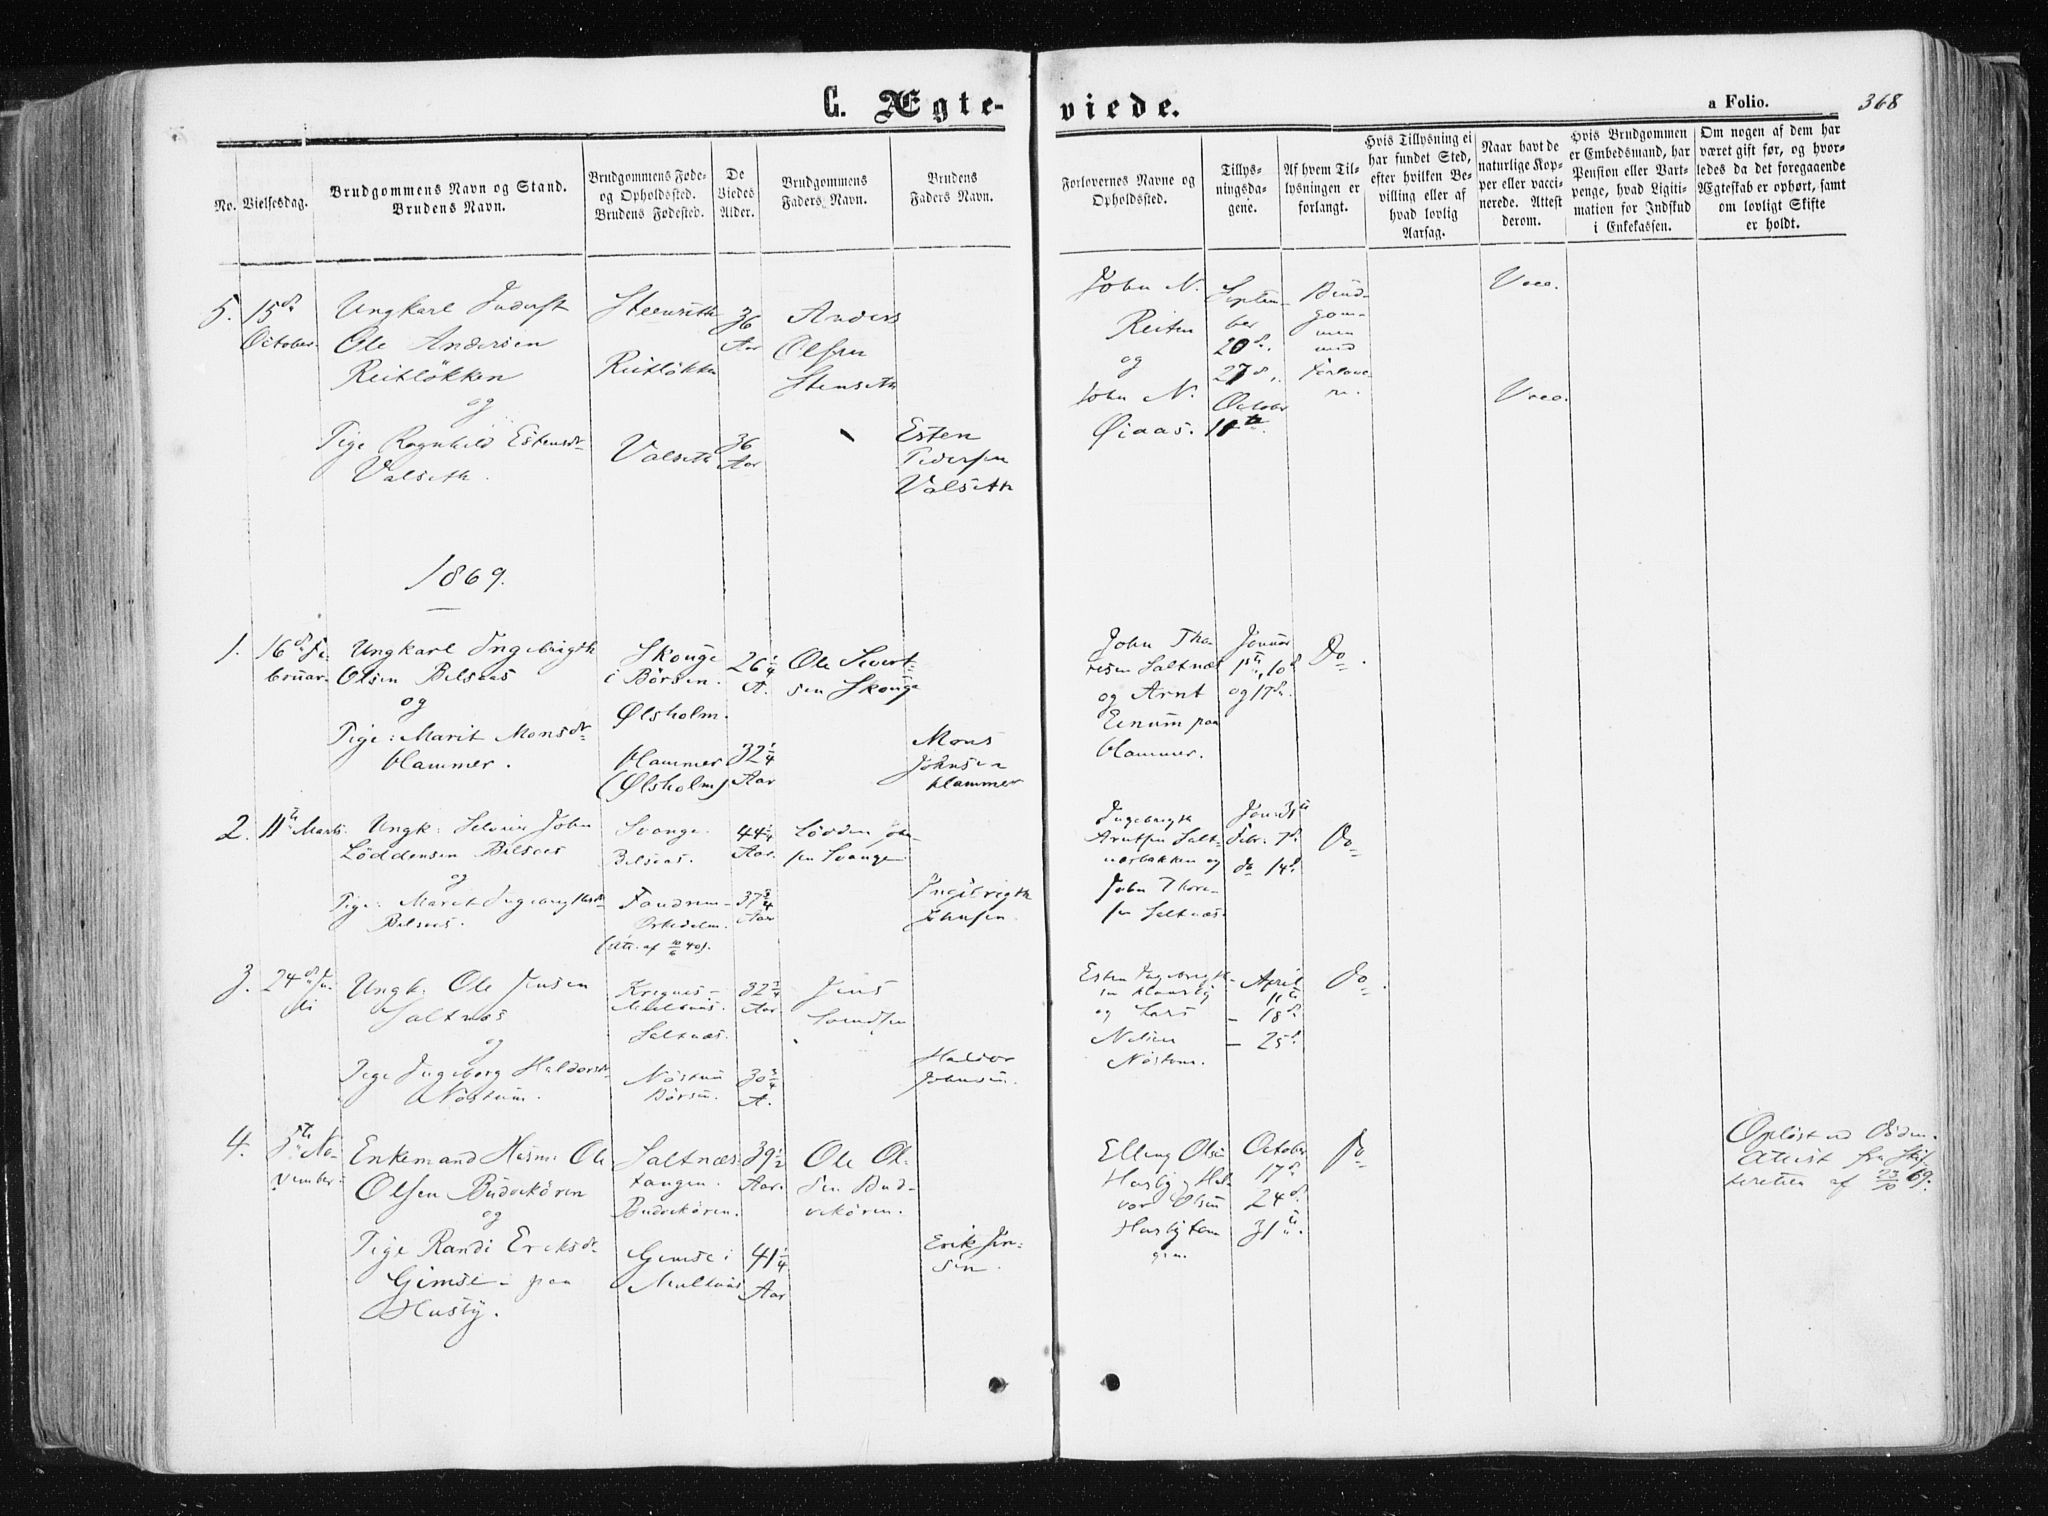 C. Ægte-viede.
a Folio. 368
No.
Vielsesdag.
Brudgommens Navn og Stand.
Brudens Navn.
Brudgommens Føde-
og Opholdssted.
Brudens Fødested.
De
Viedes
Alder.
Brudgommens
Faders Navn.
Brudens
Faders Navn.
Forlovernes Navne og
Opholdssted.
Tillys-
ningsda-
gene.
Af hvem Til-
lysningen er
forlangt.
Hvis Tillysning ei
har fundet Sted,
efter hvilken Be-
villing eller af
hvad lovlig
Aarsag.
Naar havt de
naturlige Kop-
per eller vacci-
nerede. Attest
derom.
Hvis Brudgommen
er Embedsmand, har
Pension eller Vart-
penge, hvad Ligiti-
mation for Indskud
i Enkekassen.
Om nogen af dem har
været gift før, og hvor-
ledes da det foregaaende
Ægteskab er ophørt, samt
om lovligt Skifte
er holdt.
5.
15de
October.
Ungkarl Inderst
Ole Andersen
Reitløkken
og
Pige Ragnhild Estensdr
Valseth.
Steenseth
Reitløkken
Valseth
36
Aar
36
Aar
Anders
Olsen
Stenseth
Esten
Pedersen
Valseth
John N.
Reiten
og
John N.
Øiaas.
Septem-
ber
20de.
27de.
October
11te.
Brud-
gom-
men
med
Forlove-
re.
Vacc.
Vacc.
1869.
1.
16de Fe-
bruar.
Ungkarl Ingebrigth
Olsen Belsaas
og
Pige: Marit Monsdr
Hammer.
Skouge
i Børsen.
Ølsholm.
Hammer
(Ølsholm)
26 1/4
A.
32 1/4
Aar
Ole Sivert-
sen Skouge
Mons
Johnsen
Hammer
John Tho-
resen Saltnæs
og Arnt
Eenum paa
Hammer.
Januar
1ste, 10de
og 17de.
Do.
2.
11te Marts.
Ungk: Selveier John
Løddensen Belsaas
og
Pige: Marit Ingebrigtsdr
Belsaas.
Svange.
Belsaas.
Orkedalen.
(Att. af 10/6 40).
44 1/4
Aar.
37 3/4
Aar
Lødden John-
sen Svange
Ingebrigth
Johnsen.
Ingebrigth
Arntsen Salt-
næsbakken og
John Thore-
sen Saltnæs.
Jan. 31te
Febr. 7de
do 14de
Do
3.
24de Ju-
li
Ungk. Ole Jensen
Saltnæs
og
Pige Ingeborg Haldorsdr
Nøstum.
Meelhuus.
Saltnæs.
Nøstum
Børsen.
32 3/4
Aar
30 3/4
A.
Jens
Svendsen
Haldor
Johnsen.
Esten Ingebrigt-
sen
og Lars
Nilsen
Nøstum.
April
11te
- 18de
- 25de
Do.
4.
5te No-
vember
Enkemand Husm: Ole
Olsen Budvekøren
og
Pige Randi Eriksdr
Gimse - paa
Husby.
Saltnæs-
tangen.
Budvekøren.
Gimse i
Meelhuus
39 1/2
Aar.
41 1/4
Aar
Ole Ol-
sen Bud-
vekøren.
Erik Jen-
sen.
Elling Olsen
Husby, Hal-
vor Olsen
Husbytan-
gen.
October
17de
24de.
31te.
Do
Opløst ved Døden.
Attest fra Skif-
teretten af 23/10 69.